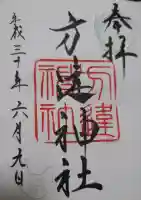 奉拝
方違神社
方違
神社
平成三十年六月九日